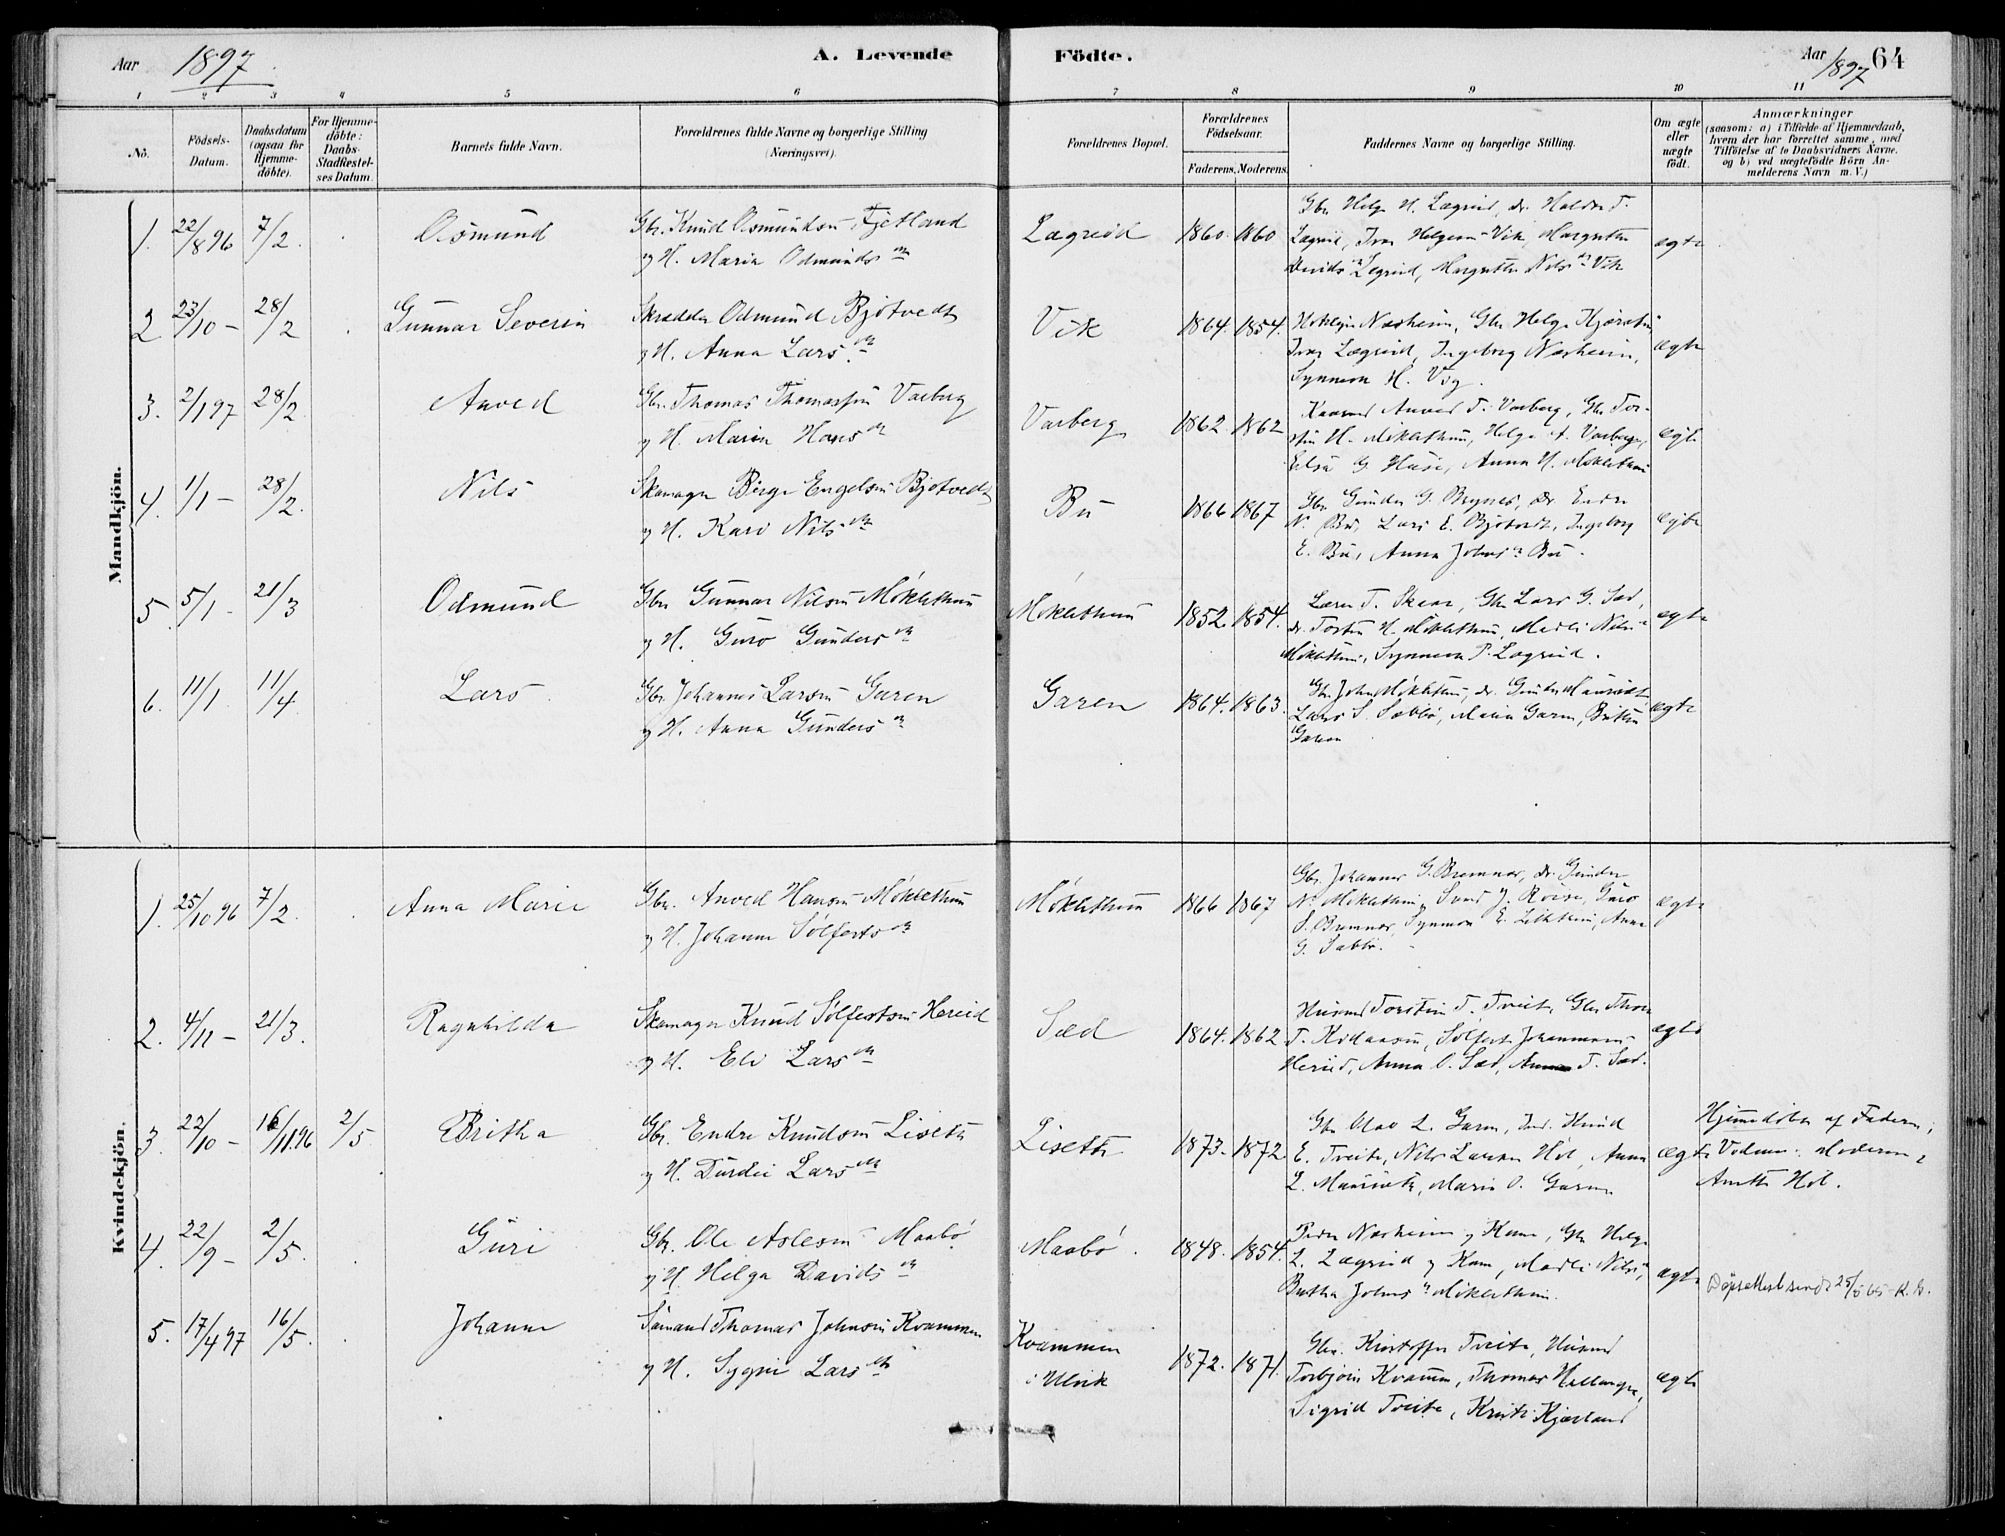 Aar 1897 A. Levende Födte. Aar 1897 64
1 2 3 4 5 6 7 8 9 10 11
No. Födsels-Datum. Daabsdatum (ogsaa for Hjemme-döbte). For Hjemme-döbte: Daabs-Stadfestel-ses Datum. Barnets fulde Navn. Forældrenes fulde Navne og borgerlige Stilling (Næringsvei). Forældrenes Bopæl. Forældrenes Födselsaar. Faderens. Moderens. Faddernes Navne og borgerlige Stilling. Om ægte eller uægte födt. Anmærkninger
(saasom: a) i Tilfælde af Hjemmedaab,
hvem der har forrettet samme, med
Tilföielse af to Daabsvidners Navne,
og b) ved uægtefödte Börn An-
melderens Navn m. V.)
Mandkjön.
1. 22/8 96 7/2. Osmund Gbr. Knud Osmundsen Fjetland
og H. Maria Odmundsdr Lægreid 1860. 1860 Gbr. Helge H. Lægreid, dr. Haldor T.
Lægreid, Ivar Helgesen Vik, Margretha
Davidsdr Lægreid, Margretha Nilsdr Vik ægte
2 23/10 - 28/2 Gunnar Severin Skrædder Odmund Bjotvedt
og H. Anna Larsdr Vik 1864. 1854. Næsheim, Gbr Helge
Ivar Lægreid, Ingeborg Næsheim,
Synneva H. ægte
3. 2/1 97 28/2 Anved Gbr. Thomas Thomassen Varberg
og H. Maria Hansdr Varberg 1862. 1862 Anved T. Varberg, Gbr Tor-
stein H. Möklethun, Helge A. Varberg,
Elsa G. Huse, Anna H. Möklethun ægte
4. 1/1 - 28/2. Nils Skomager Berge Engelsen Bjotvedt
og H. Kari Nilsdr Bu 1866 1867 Gbr Gunder G. Bryner, dr. Endre
N. Bu, Lars E. Bjotvedt, Ingeborg
E. Bu, Anna Johnsdr Bu. ægte
5. 5/1 - 21/3 Odmund Gbr Gunnar Nilsen Möklethun
og H. Guro Gundersdr Möklethun 1852. 1854. Lærer T. Skaar, Gbr Lars G. Sæd,
dr. Torstein H. Möklethun, Nilsdr
Möklethun, Synneva P. Lægreid. ægte
6. 11/1. 11/4 Lars Gbr Johannes Larsen Garen
og H. Anna Gundersdr Garen 1864. 1863. Gbr. John Möklethun, dr. Gunder
Lars S. Sæbbö, Maria Garen, Britha
Garen ægte
Kvindekjön.
1. 25/10 96 7/2. Anna Marie Gbr. Anved Hansen Möklethun
og H. Johanna Sölfestsdr Möklethun 1866 1867 Gbr. Johannes G. Bremnes, dr. Gunder
N. Möklethun, Svend J. Röise, Guro
S. Bremnes, Synneva E. Anna
G. Sæbbö. ægte
2. 4/11 - 21/3. Ragnhilda Skomager Knud Sölfestsen Hereid
og H. Eli Larsdr Sæd 1864. 1862 Husmd Torstein T. Tveite, Gbr
T. Sölfest Johannessen
Hereid, Anna O. Sæd, T. Sæd. ægte
3. 22/10 - 16/11.96 2/5 Britha Gbr. Endre Knudsen Liseth
og H. Durdei Larsdr Liseth 1873. 1872. Gbr Olav L. Garen, Knud
E. Tveite, Nils Larsen Hol, Anna
L. Maurset, Maria O. Garen ægte Hjemmedöbt af Faderen;
Moderen &
Anette Hol.
4. 22/9 - 2/5. Guri Gbr. Ole Aslesen Maabö
og H. Helga Davidsdr Maabö. 1848. 1854. Peder Næsheim og Kone, Gbr Helge
L. Lægreid og Kone, Nilsdr,
Britha Johnsdr Möklethun. ægte Döpsattest sendt 25/5 65 K.
5. 17/4 97 16/5. Johanna Sömand Thomas Johnsen Kvammen
og H. Sygni Larsdr Kvammen
i Ulvik 1872. 1871. Gbr. Kristoffer Tveite, Husmd
Torbjörn Kvammen, Thomas
Sigrid Tveite, Kristi Kjærland ægte